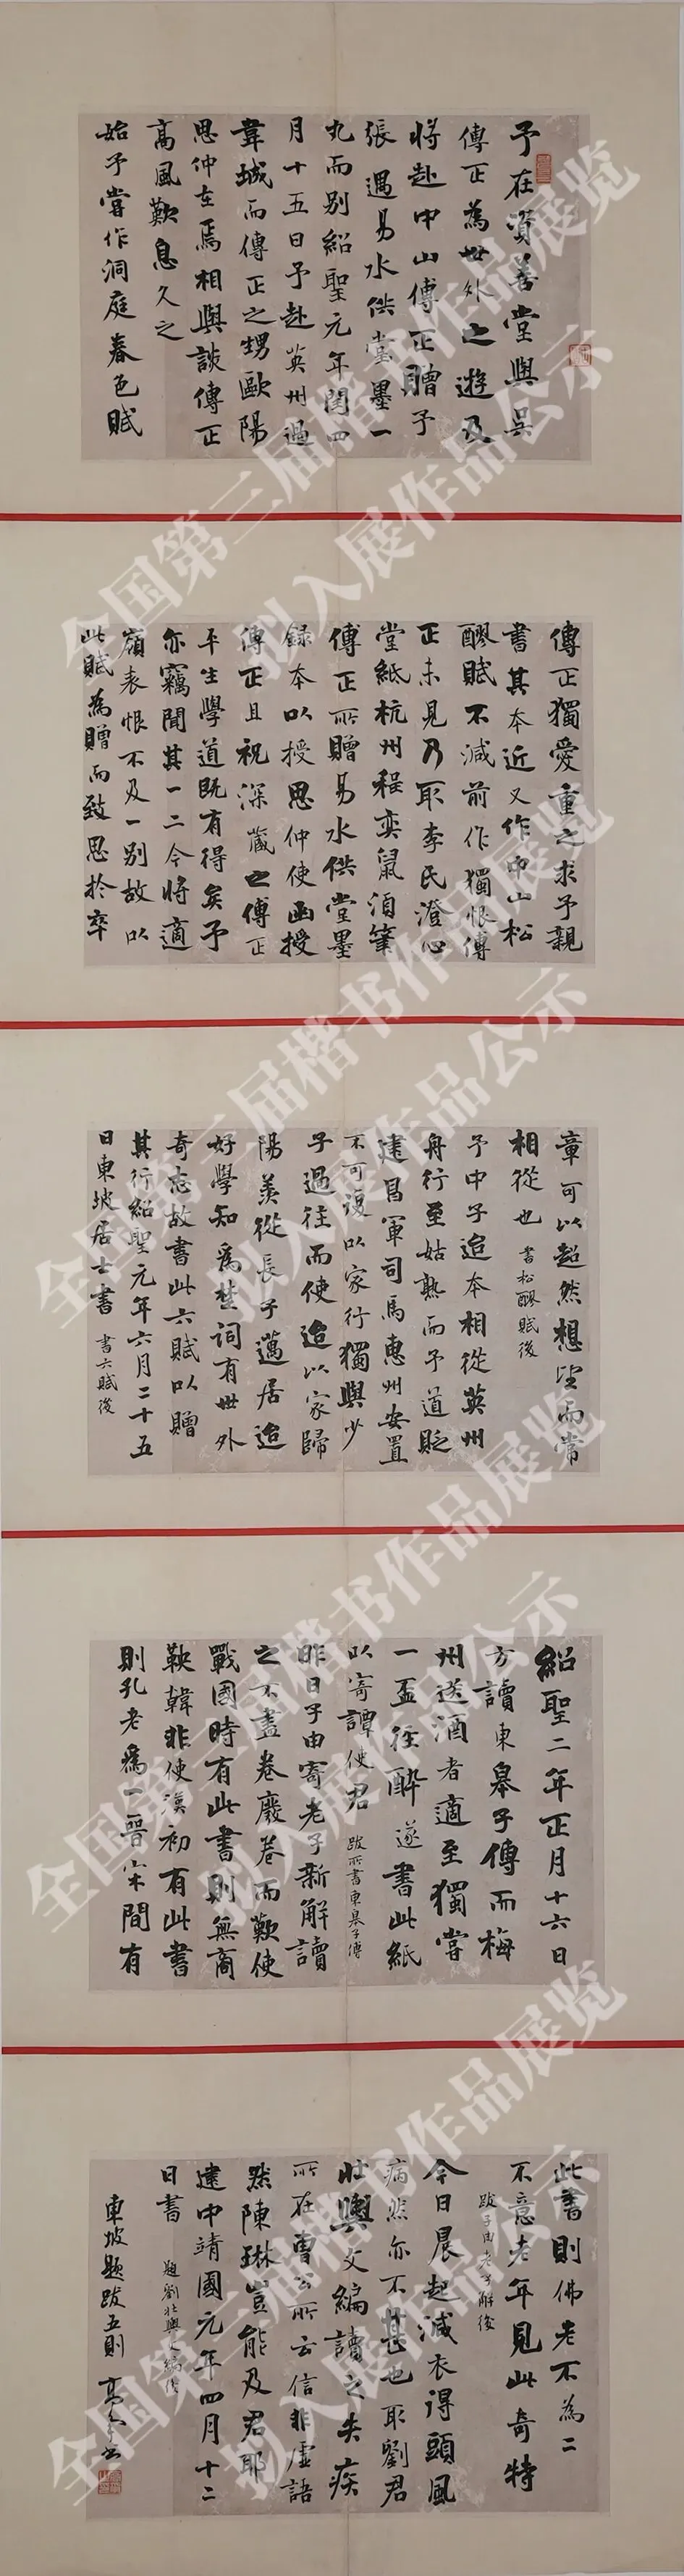 予在資善堂與吳
傳正為世外之遊及
將赴中山傳正贈予
張遇易水供堂墨一
丸而別紹聖元年閏四
月十五日予赴英州過
韋城而傳正之甥歐陽
思仲在焉相與談傳正
高風歎息久之
始予嘗作洞庭春色賦
傳正獨愛重之求予親
書其本近又作中山松
醪賦不減前作獨恨傳
正未見乃取李氏澄心
堂紙杭州程奕鼠須筆
傳正所贈易水供堂墨
録本以授思仲使面授
傳正且祝深藏之傳正
平生學道既有得矣予
亦竊聞其一二今將適
嶺表恨不及一別故以
此賦為贈而致思於卒
章可以超然想望而常
相從也 書松醪賦後
予中子迨本相從英州
舟行至姑熟而予道貶
建昌軍司馬惠州安置
不可復以家行獨與少
子過往而使迨以家歸
陽羨從長子邁居迨
好學知為楚詞有世外
奇志故書此六賦以贈
其行紹聖元年六月二十五
日東坡居士書 書六賦後
紹聖二年正月十六日
方讀東皋子傳而梅
州送酒者適至獨嘗
一盃徑醉遂書此紙
以寄譚使君 跋所書東皋子傳
昨日子由寄老子新解讀
之不盡卷廢卷而歎使
戰國時有此書則無商
鞅韓非使漢初有此書
則孔老為一晉宋間有
此書則佛老不為二
不意老年見此奇特
跋子由老子解後
今日晨起減衣得頭風
病然亦不甚也取劉君
壯輿文編讀之失疾
所在曹公所云信非虛語
然陳琳豈能及君耶
建中靖國元年四月十二
日書 題劉壯輿文編後
東坡題跋五則
全国第三届楷书作品展览
拟入展作品公示
全国第三届楷书作品展览
拟入展作品公示
全国第三届楷书作品展览
拟入展作品公示
全国第三届楷书作品展览
拟入展作品公示